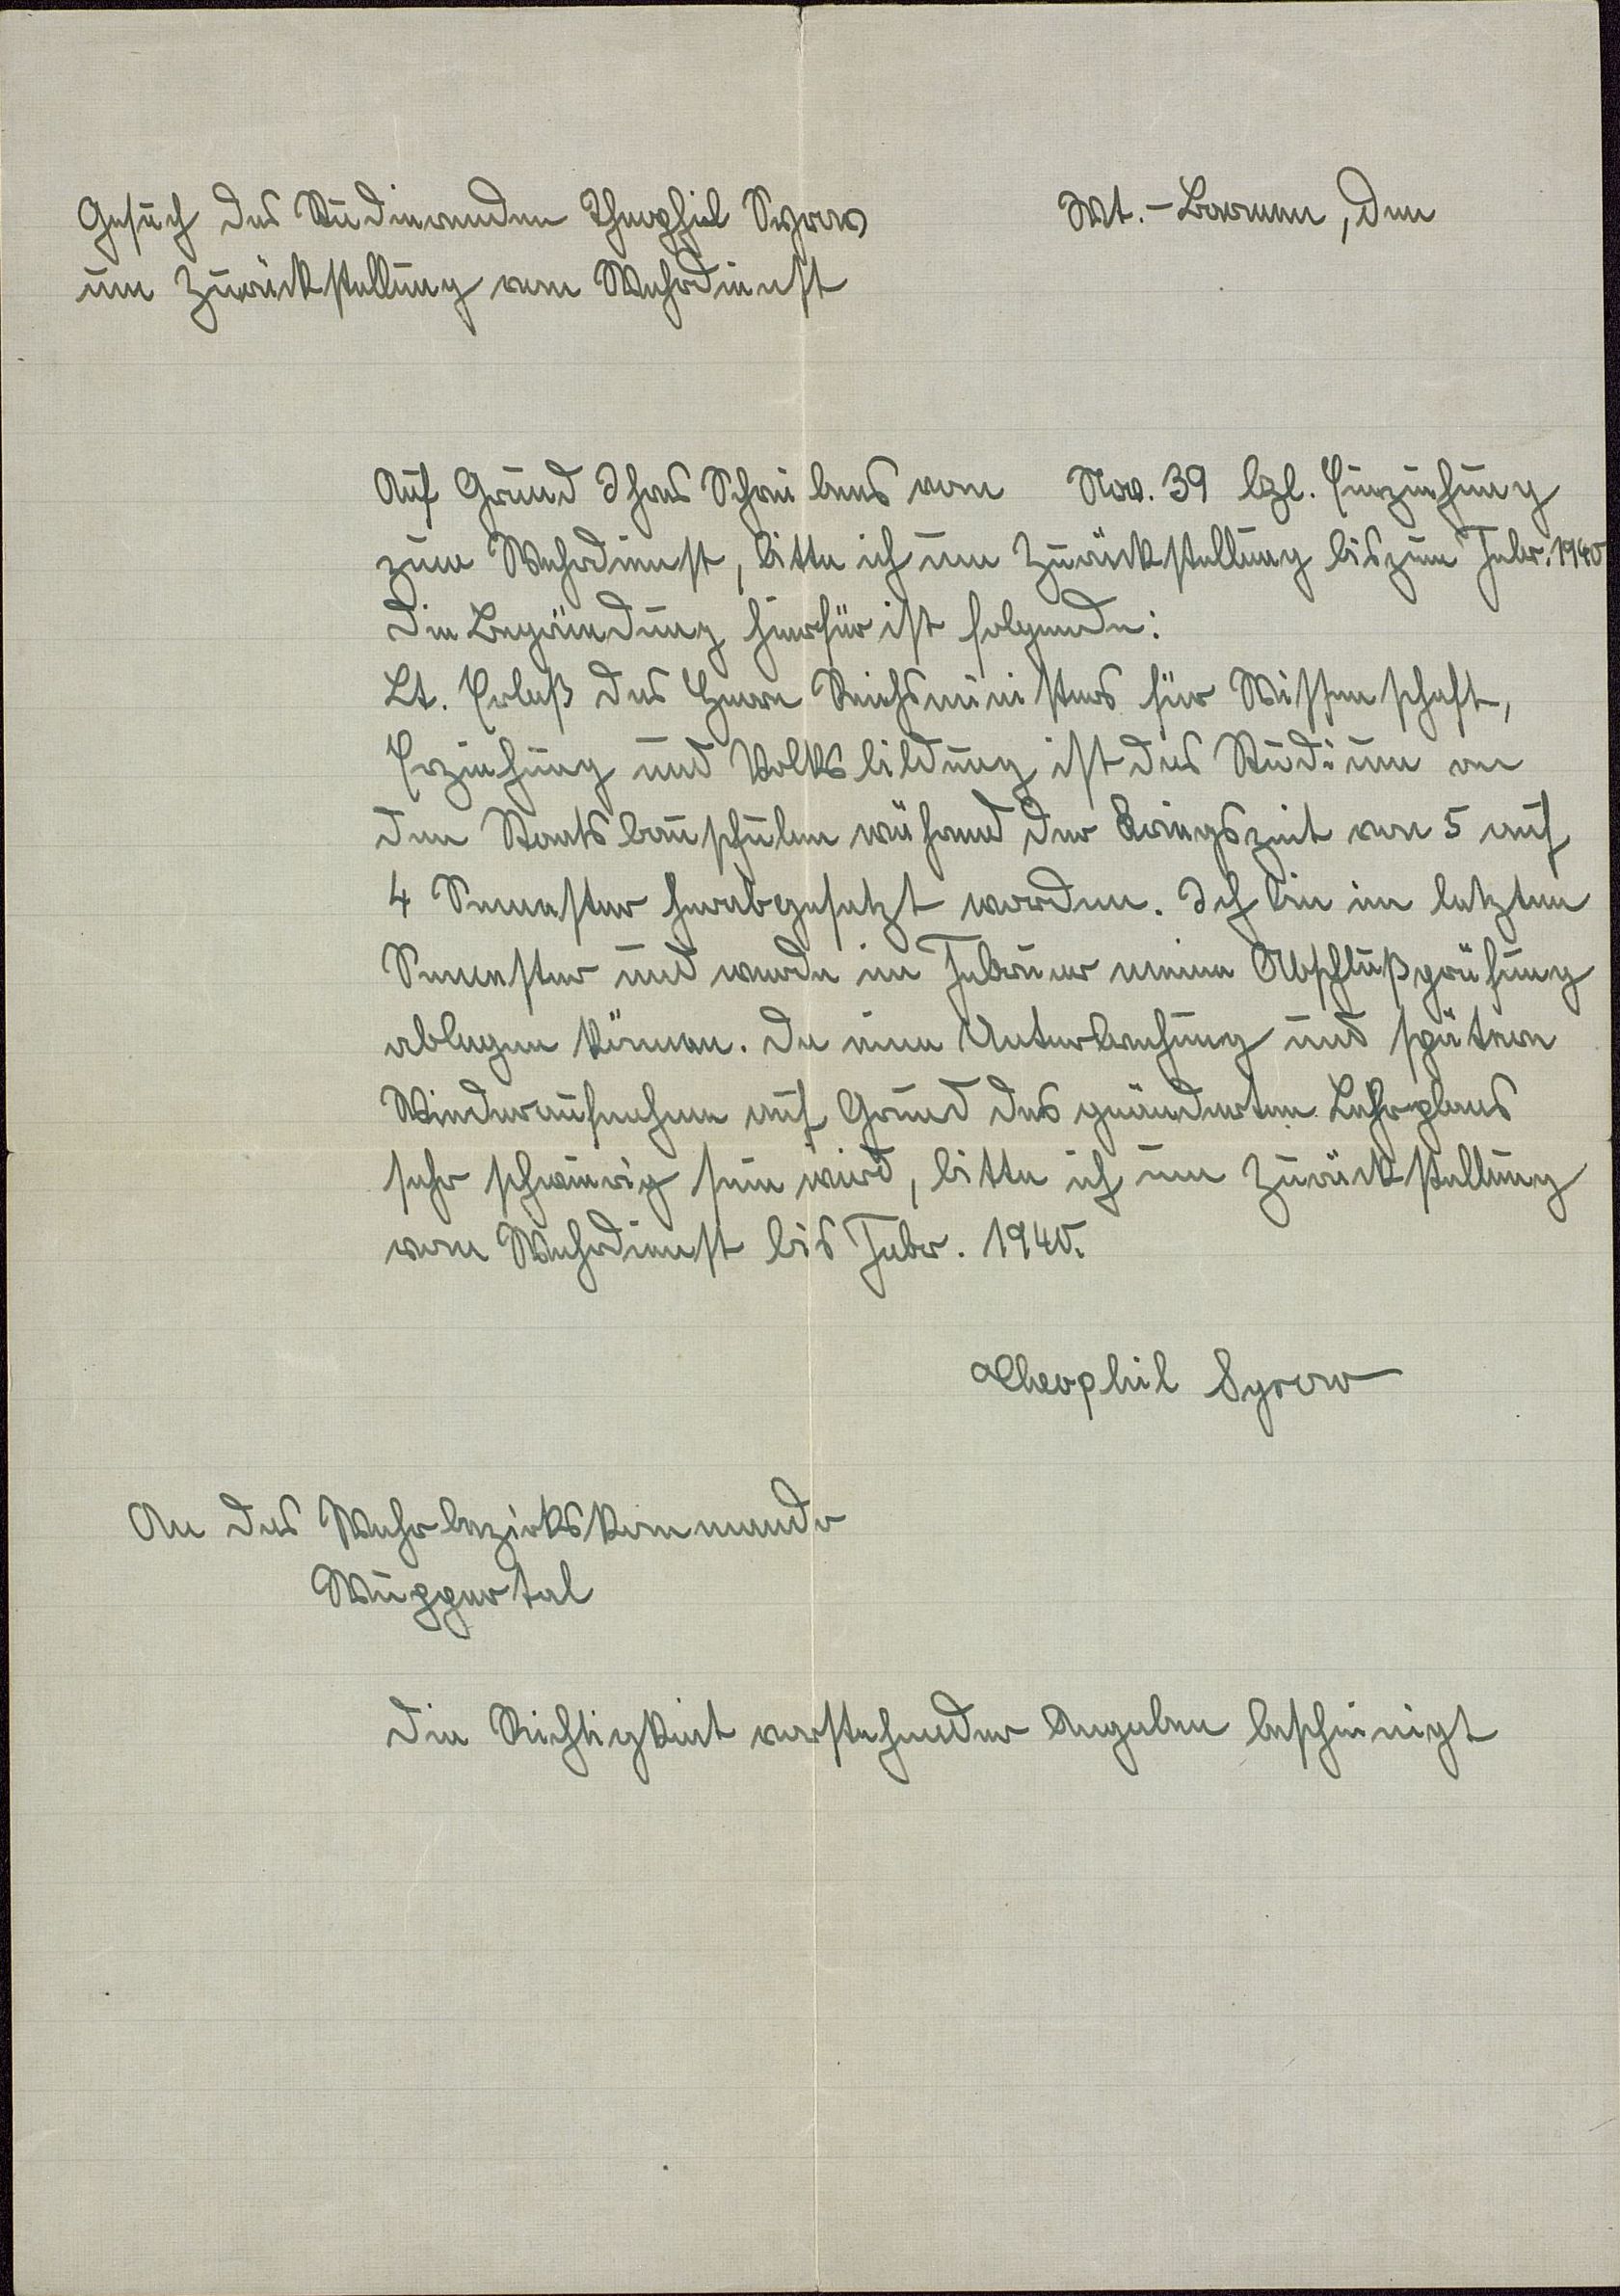 Gesuch des Studierenden Theophil Syrow
Wt.-Barmen, den
um Zurückstellung vom Wehrdienst
Auf Grund Ihres Schreibens vom Nov. 39 bzl. Einziehung
zum Wehrdienst, bitte ich um Zurückstellung bis zum Febr. 1940
Die Begründung hierfür ist folgende:
Lt. Erlaß des Herrn Reichsministers für Wissenschaft,
Erziehung und Volksbildung ist das Studium an
den Staatsbauschulen während der Kriegszeit von 5 auf
4 Semester herabgesetzt worden. Ich bin im letzten
Semester und werde im Februar meine Abschlußprüfung
ablegen können. Da eine Unterbrechung und spätere
Wiederaufnahme auf Grund des geänderten Lehrplans
sehr schwierig sein wird, bitte ich um Zurückstellung
vom Wehrdienst bis Febr. 1940.
Theophil Syrow
An das Wehrbezirkskommando
Wuppertal
Die Richtigkeit vorstehender Angaben bescheinigt